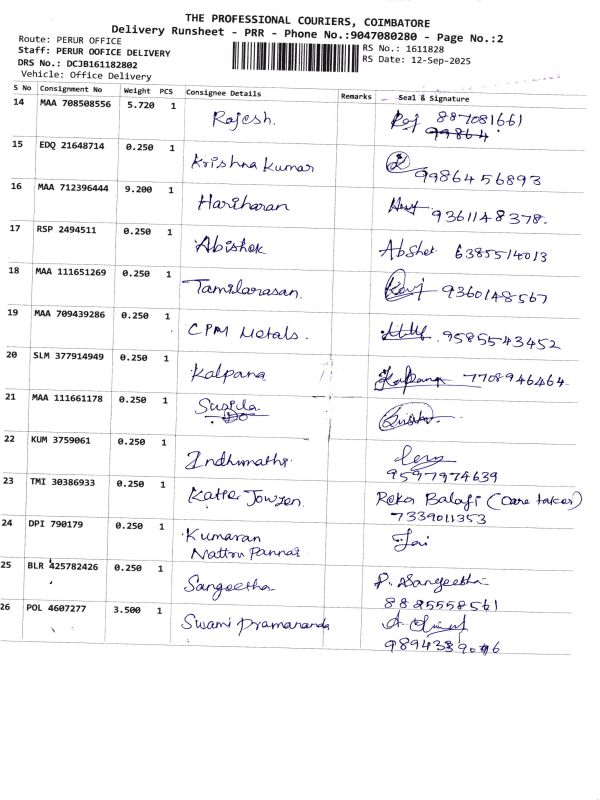 THE PROFESSIONAL COURIERS, COIMBATORE
Delivery Runsheet - PRR - Phone No.:9047080280 - Page No.:2
Route: PERUR OFFICE
RS No.: 1611828
Staff: PERUR OOFICE DELIVERY
RS Date: 12-Sep-2025
DRS No.: DCJB161182802
Vehicle: Office Delivery
S No Consignment No Weight PCS Consignee Details Remarks Seal & Signature
14 MAA 708508556 5.720 1 Rajesh. Raj 887081661
99864
15 EDQ 21648714 0.250 1 Krishna Kumar 9986456893
16 MAA 712396444 9.200 1 Hariharan 9361148378.
17 RSP 2494511 0.250 1 Abishek Abshek 6385514013
18 MAA 111651269 0.250 1 Tamilarasan. 9360148567
19 MAA 709439286 0.250 1 CPM Metals. 9585543452
20 SLM 377914949 0.250 1 Kalpana Kalpana 7708946464
21 MAA 111661178 0.250 1 Susila
22 KUM 3759061 0.250 1 Indhumathi.
9597974639
23 TMI 30386933 0.250 1 Reka Balaji (Care taker)
7339011353
24 DPI 790179 0.250 1 Kumaran Jai
Pannai
25 BLR 425782426 0.250 1 Sangeetha. P. Sangeetha
8825558561
26 POL 4607277 3.500 1 Swami Pramananda